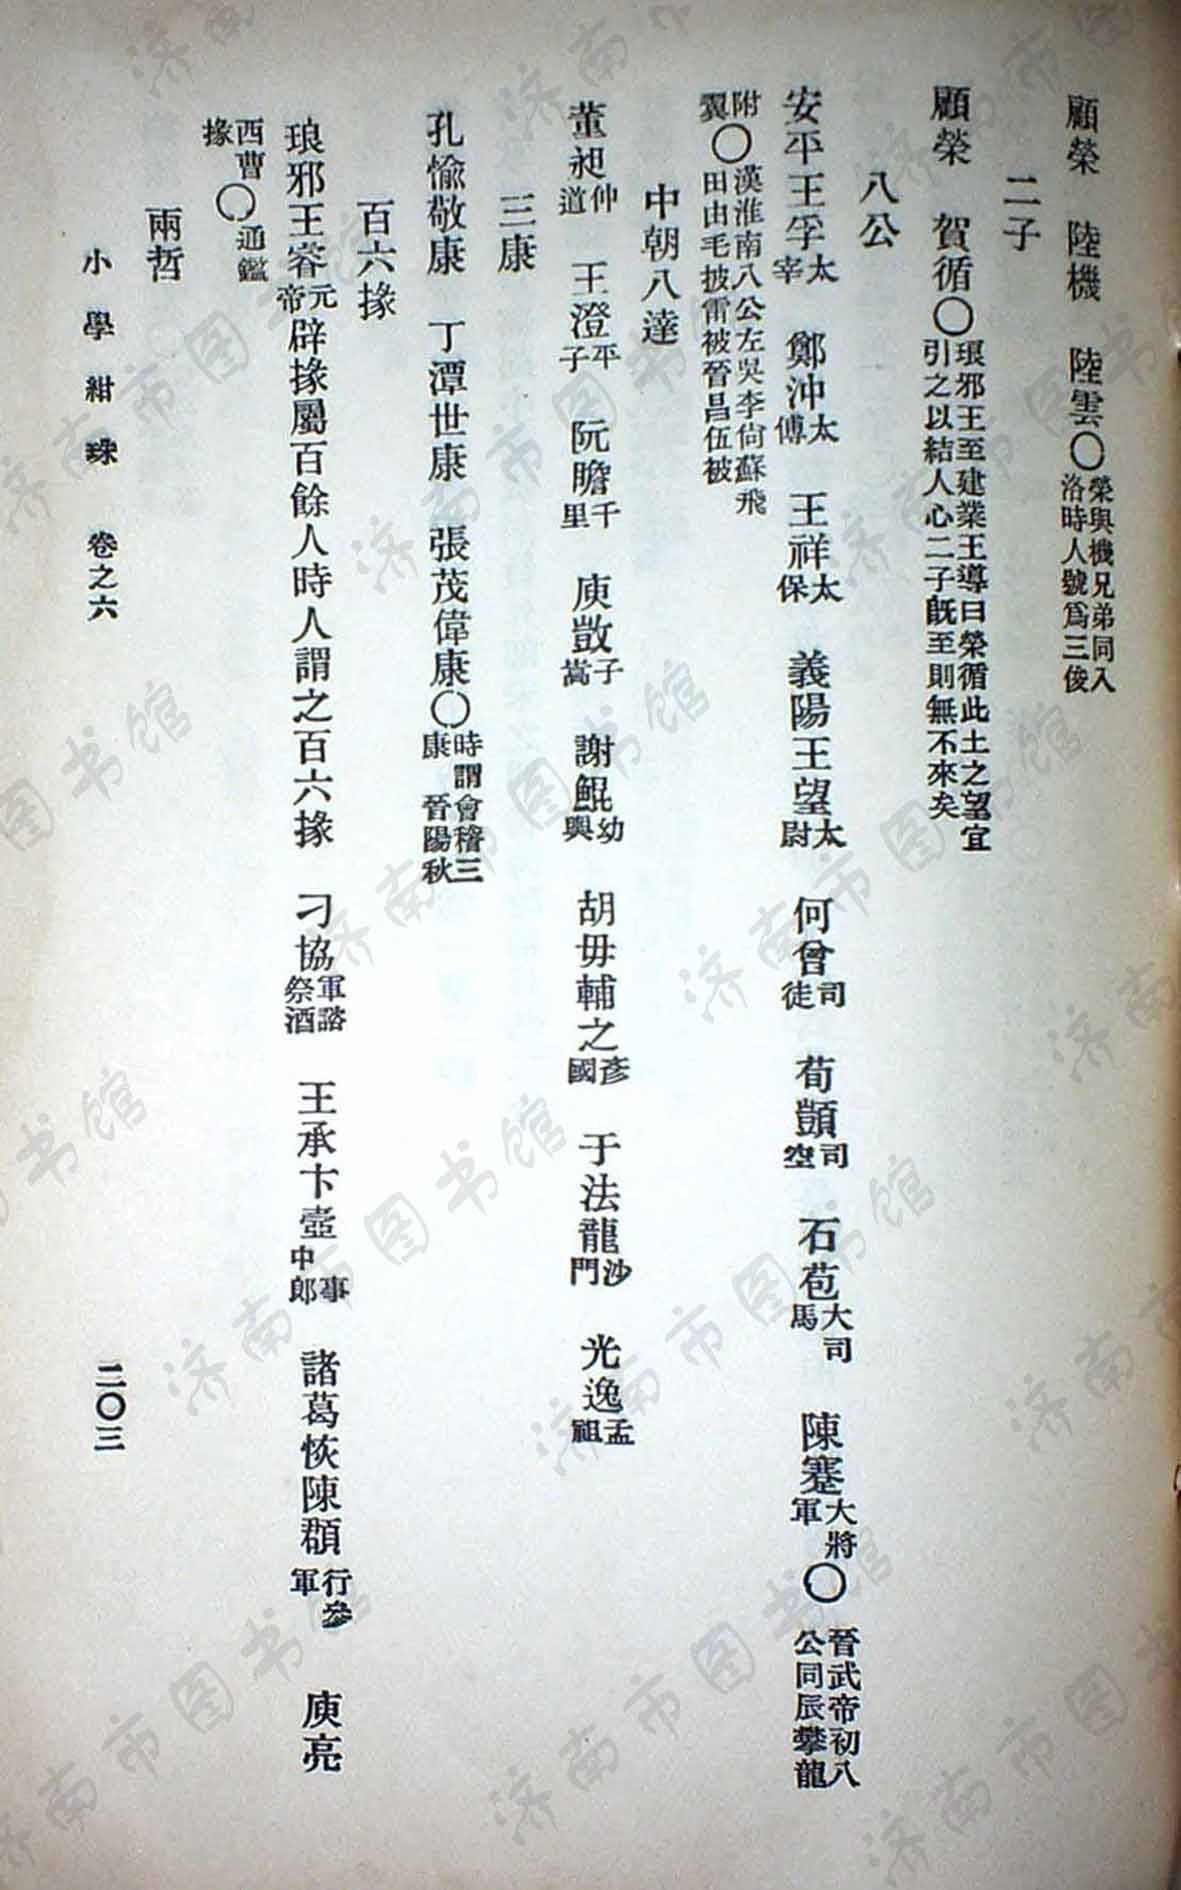 顧榮　陸機　陸雲〇榮與機兄弟同入洛時人號爲三俊
二子
顧榮　賀循〇琅邪王至建業王導曰榮循此土之望宜引之以結人心二子旣至則無不來矣
八公
安平王孚太宰　鄭沖太傅　王祥太保　義陽王望太尉　何曾司徒　荀顗司空　石苞大司馬　陳騫大將軍〇晉武帝初八公同辰攀龍
附翼〇漢淮南八公左吳李尙蘇飛田由毛披雷被晉昌伍被
中朝八達
董昶仲道　王澄平子　阮瞻千里　庾敳子嵩　謝鯤幼輿　胡毋輔之彥國　于法龍沙門　光逸孟祖
三康
孔愉敬康　丁潭世康　張茂偉康〇時謂會稽三康　晉陽秋
百六掾
琅邪王睿元帝辟掾屬百餘人時人謂之百六掾　刁協軍諮祭酒　王承卞壼事中郎　諸葛恢陳頵行參軍　庾亮
西曹掾〇通鑑
兩哲
小學紺珠　卷之六　二〇三
济南市图书馆